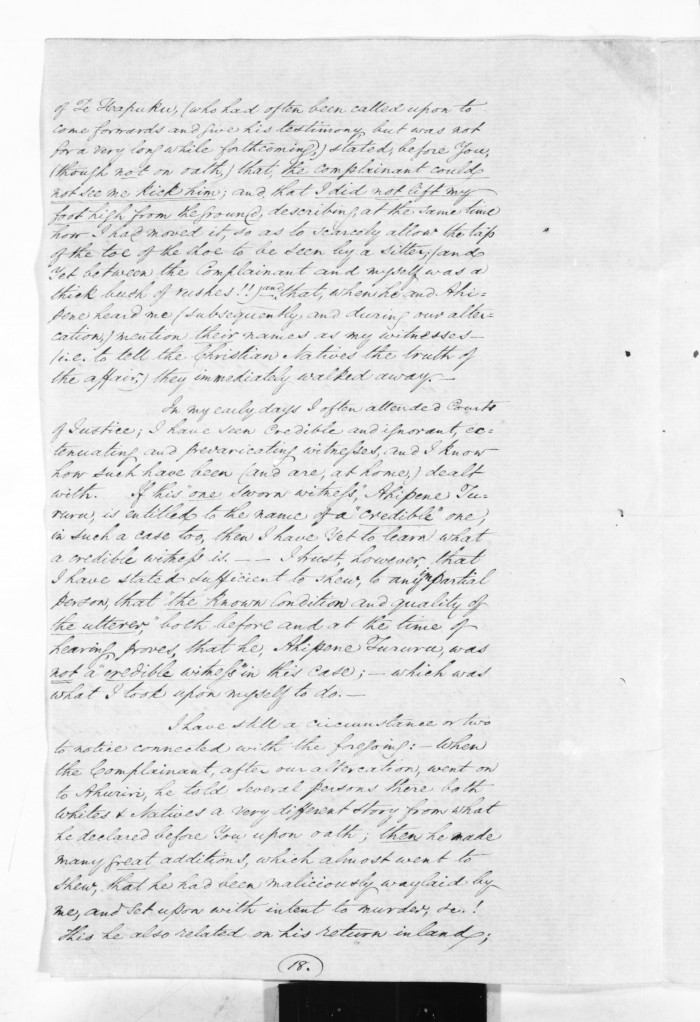 of Te Hapuku, (who had often been called upon to
come forwards and give his testimony but was not
for a very long while forthcoming,) stated, before You,
(though not on oath,) that, the complainant could
not see me kick him; and, that I did not lift my
foot high from the ground, describing, at the same time
how I had moved it, so as to scarcely allow the tip
of the toe of the shoe to be seen by a sitter; (and
yet between the Complainant and myself was a
thick bush of rushes!!) and, that, when he and Ahi-
pene heard me (subsequently and during our alter-
cation,) mention their names as my witnesses—
(i.e. to tell the Christian Natives the truth of
the affair,) they immediately walked away.—
In my early days I often attended Courts
of Justice; I have seen credible and ignorant, ex-
tenuating and prevaricating witnesses, and I know
how such have been (and are, at home,) dealt
with. If this "one sworn witness", Ahipene Tu-
ruru, is entitled to the name of a "credible" one,
in such a case too, then I have yet to learn what
a credible witness is. — — I trust, however, that
I have stated sufficient to shew, to any impartial
person, that "the known Condition and quality of
the utterer," both before and at the time of
hearing proves, that he, Ahipene Tururu, was
not a "credible witness" in this case; — which was
what I took upon myself to do.—
I have still a circumstance or two
to notice connected with the foregoing: — When
the Complainant, after our altercation, went on
to Ahuriri, he told several persons there both
Whites & Natives a very different story from what
he declared before You upon oath; then he made
many great additions, which almost went to
shew, that he had been maliciously waylaid by
me, and set upon with intent to murder, &c.!
This he also related on his return inland;
18.